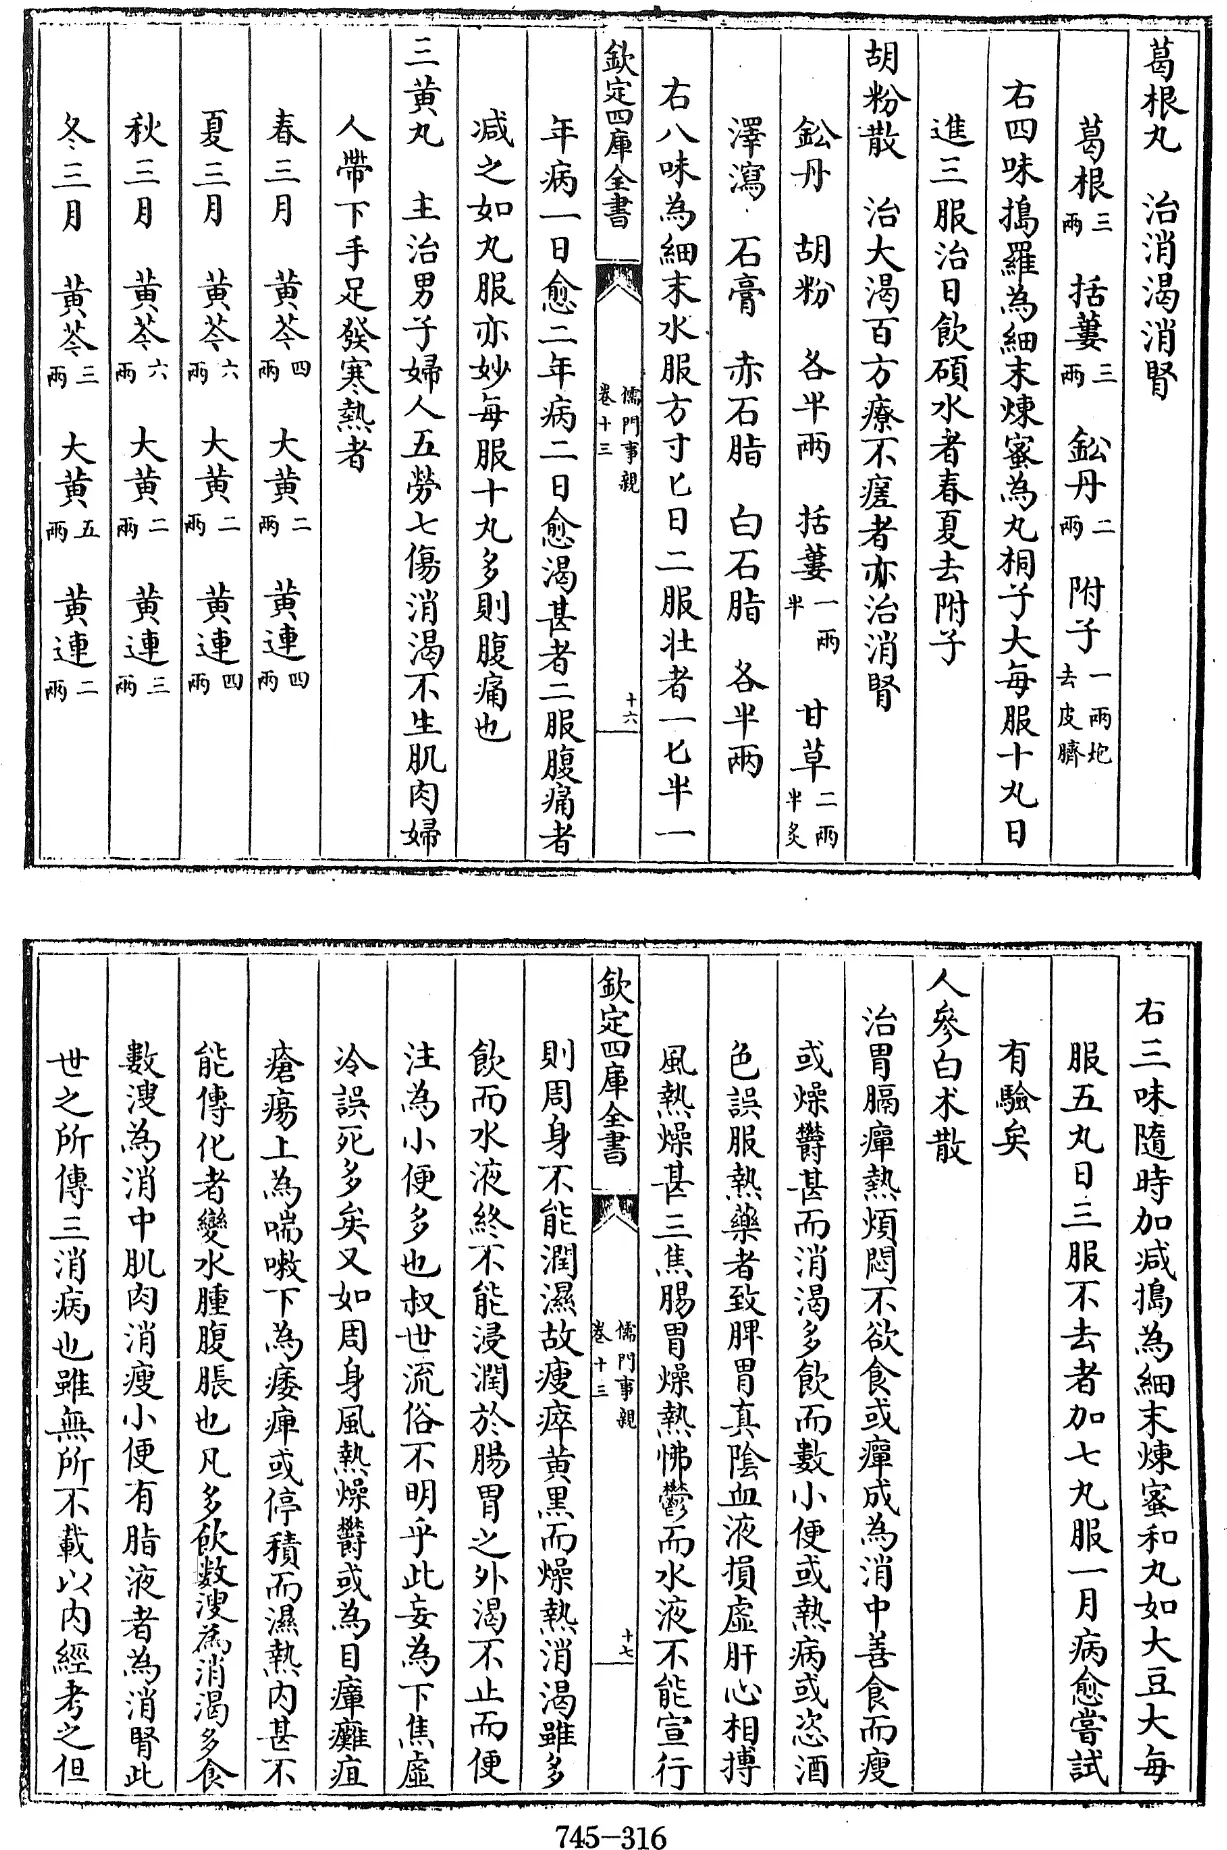 葛根丸　治消渴消腎
葛根三兩　括蔞三兩　鈆丹二兩　附子一兩炮去皮臍
右四味搗羅為細末煉蜜為丸桐子大每服十丸日
進三服治日飲碩水者春夏去附子
胡粉散　治大渴百方療不瘥者亦治消腎
鈆丹　胡粉　各半兩　括蔞一兩半　甘草二兩半炙
澤瀉　石膏　赤石脂　白石脂　各半兩
右八味為細末水服方寸匕日二服壯者一匕半一
欽定四庫全書　儒門事親卷十三　十六
年病一日愈二年病二日愈渴甚者二服腹痛者
減之如丸服亦妙每服十丸多則腹痛也
三黃丸　主治男子婦人五勞七傷消渴不生肌肉婦
人帶下手足發寒熱者
春三月　黃芩四兩　大黃二兩　黃連四兩
夏三月　黃芩六兩　大黃二兩　黃連四兩
秋三月　黃芩六兩　大黃二兩　黃連三兩
冬三月　黃芩三兩　大黃五兩　黃連二兩
右三味隨時加減搗為細末煉蜜和丸如大豆大每
服五丸日三服不去者加七丸服一月病愈嘗試
有驗矣
人參白朮散
治胃膈癉熱煩悶不欲食或癉成為消中善食而瘦
或燥鬱甚而消渴多飲而數小便或熱病或恣酒
色誤服熱藥者致脾胃真陰血液損虛肝心相搏
風熱燥甚三焦腸胃燥熱怫鬱而水液不能宣行
欽定四庫全書　儒門事親卷十三　十七
則周身不能潤濕故瘦瘁黃黑而燥熱消渴雖多
飲而水液終不能浸潤於腸胃之外渴不止而便
注為小便多也叔世流俗不明乎此妄為下焦虛
冷誤死多矣又如周身風熱燥鬱或為目瘴癰疽
瘡瘍上為喘嗽下為痿痺或停積而濕熱內甚不
能傳化者變水腫腹脹也凡多飲數溲為消渴多食
數溲為消中肌肉消瘦小便有脂液者為消腎此
世之所傳三消病也雖無所不載以內經考之但
745-316